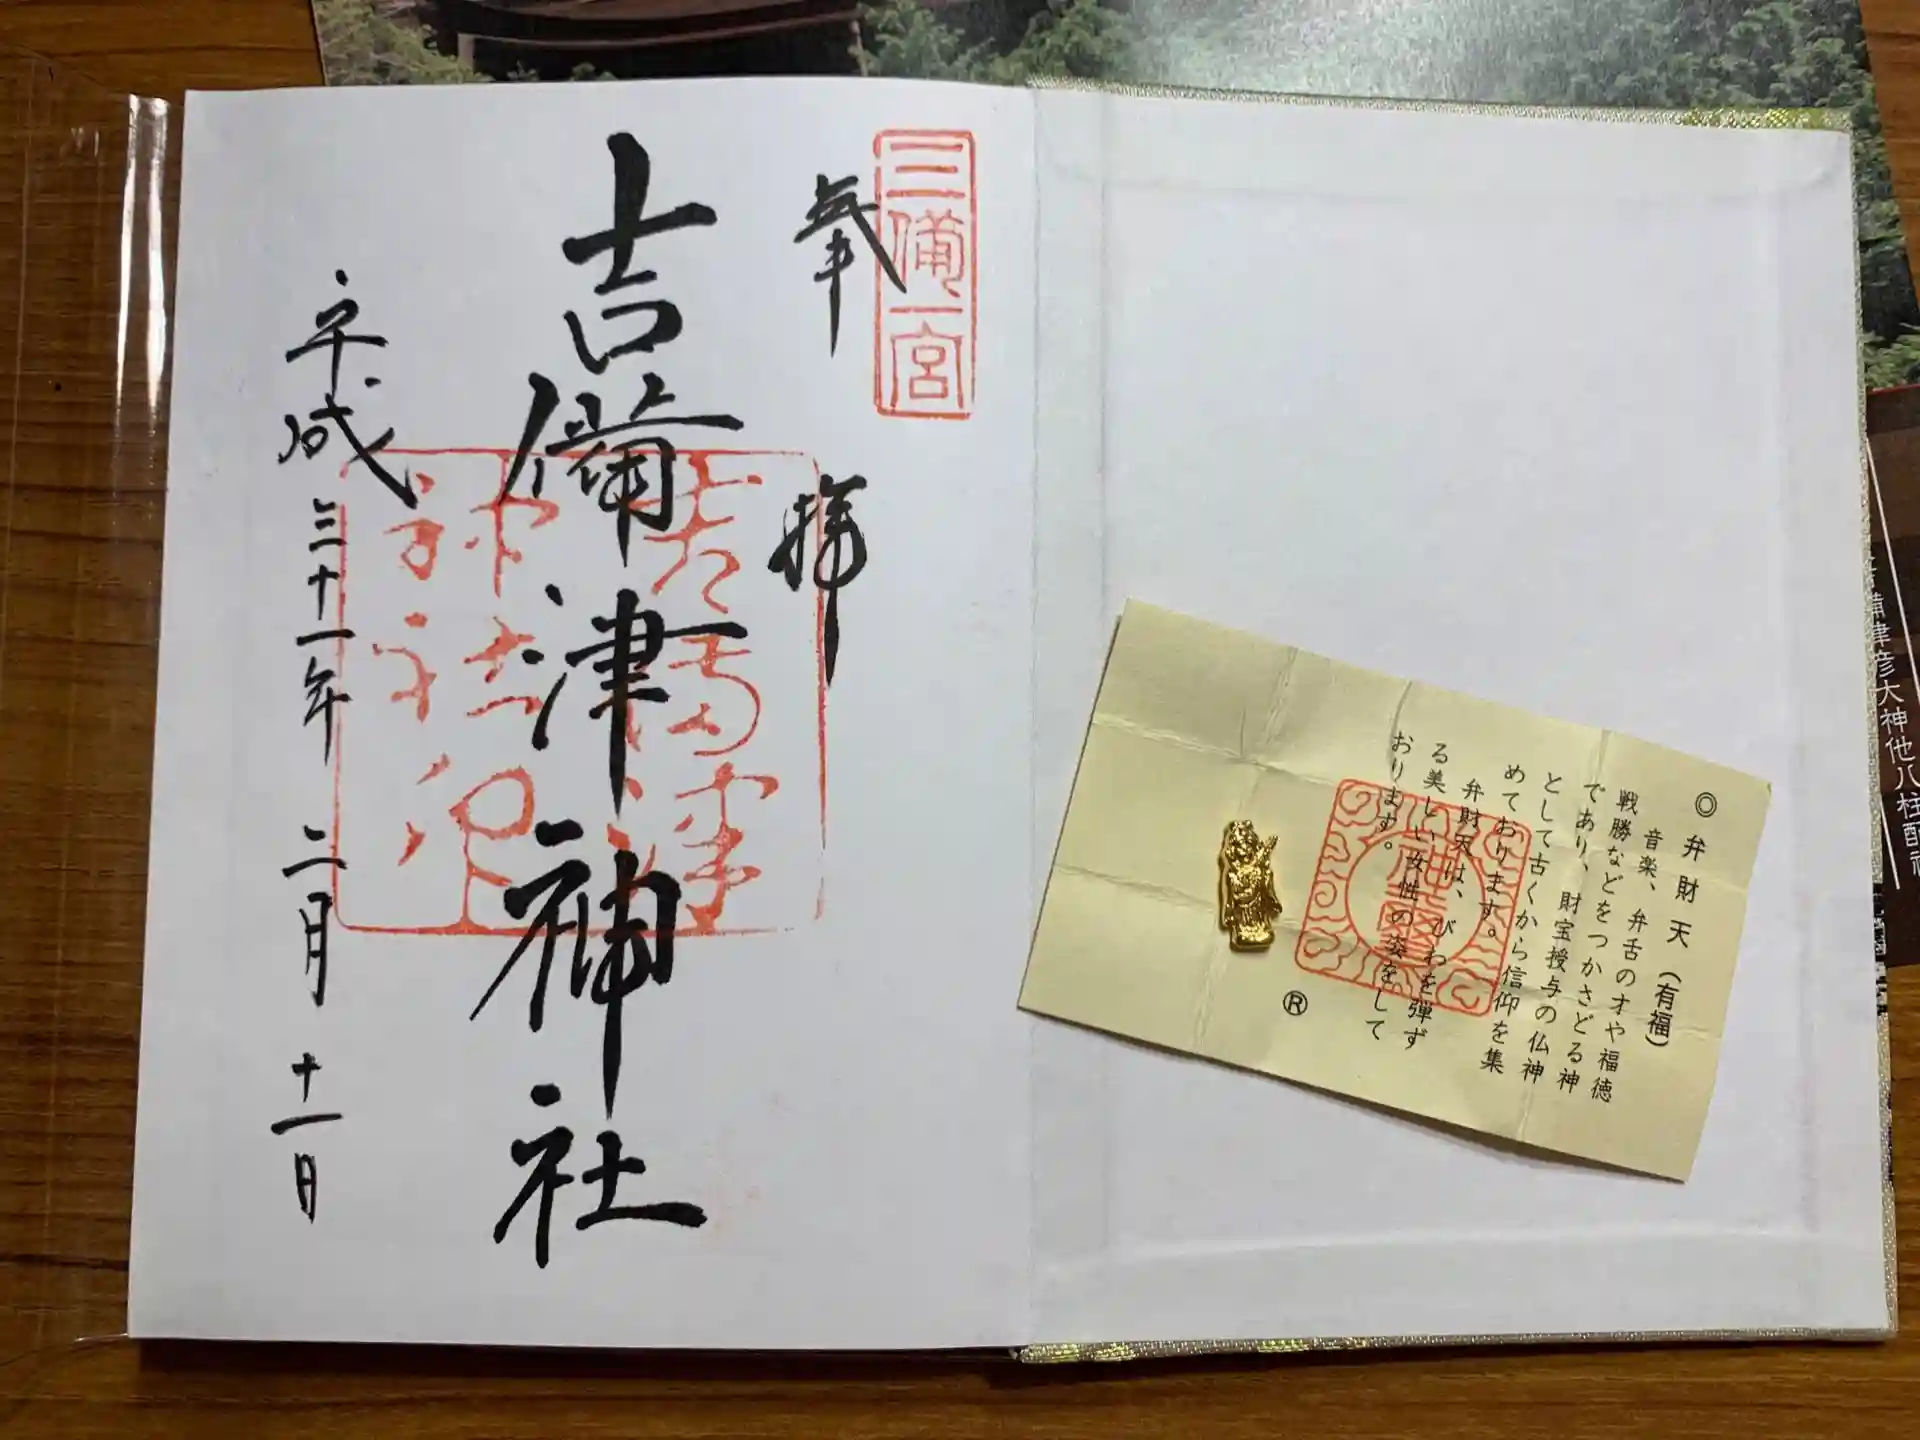 三備一宮
奉拝
吉備津神社
平成三十一年二月十一日
◎弁財天(有福)
音楽、弁舌のオや福徳
戦勝などをつかさどる神
であり、財宝授与の仏神
として古くから信仰を集
めております。
弁財天は、びわを弾ず
る美しい女性の姿をして
おります。
Ⓡ
備津彦大神他八柱配祀